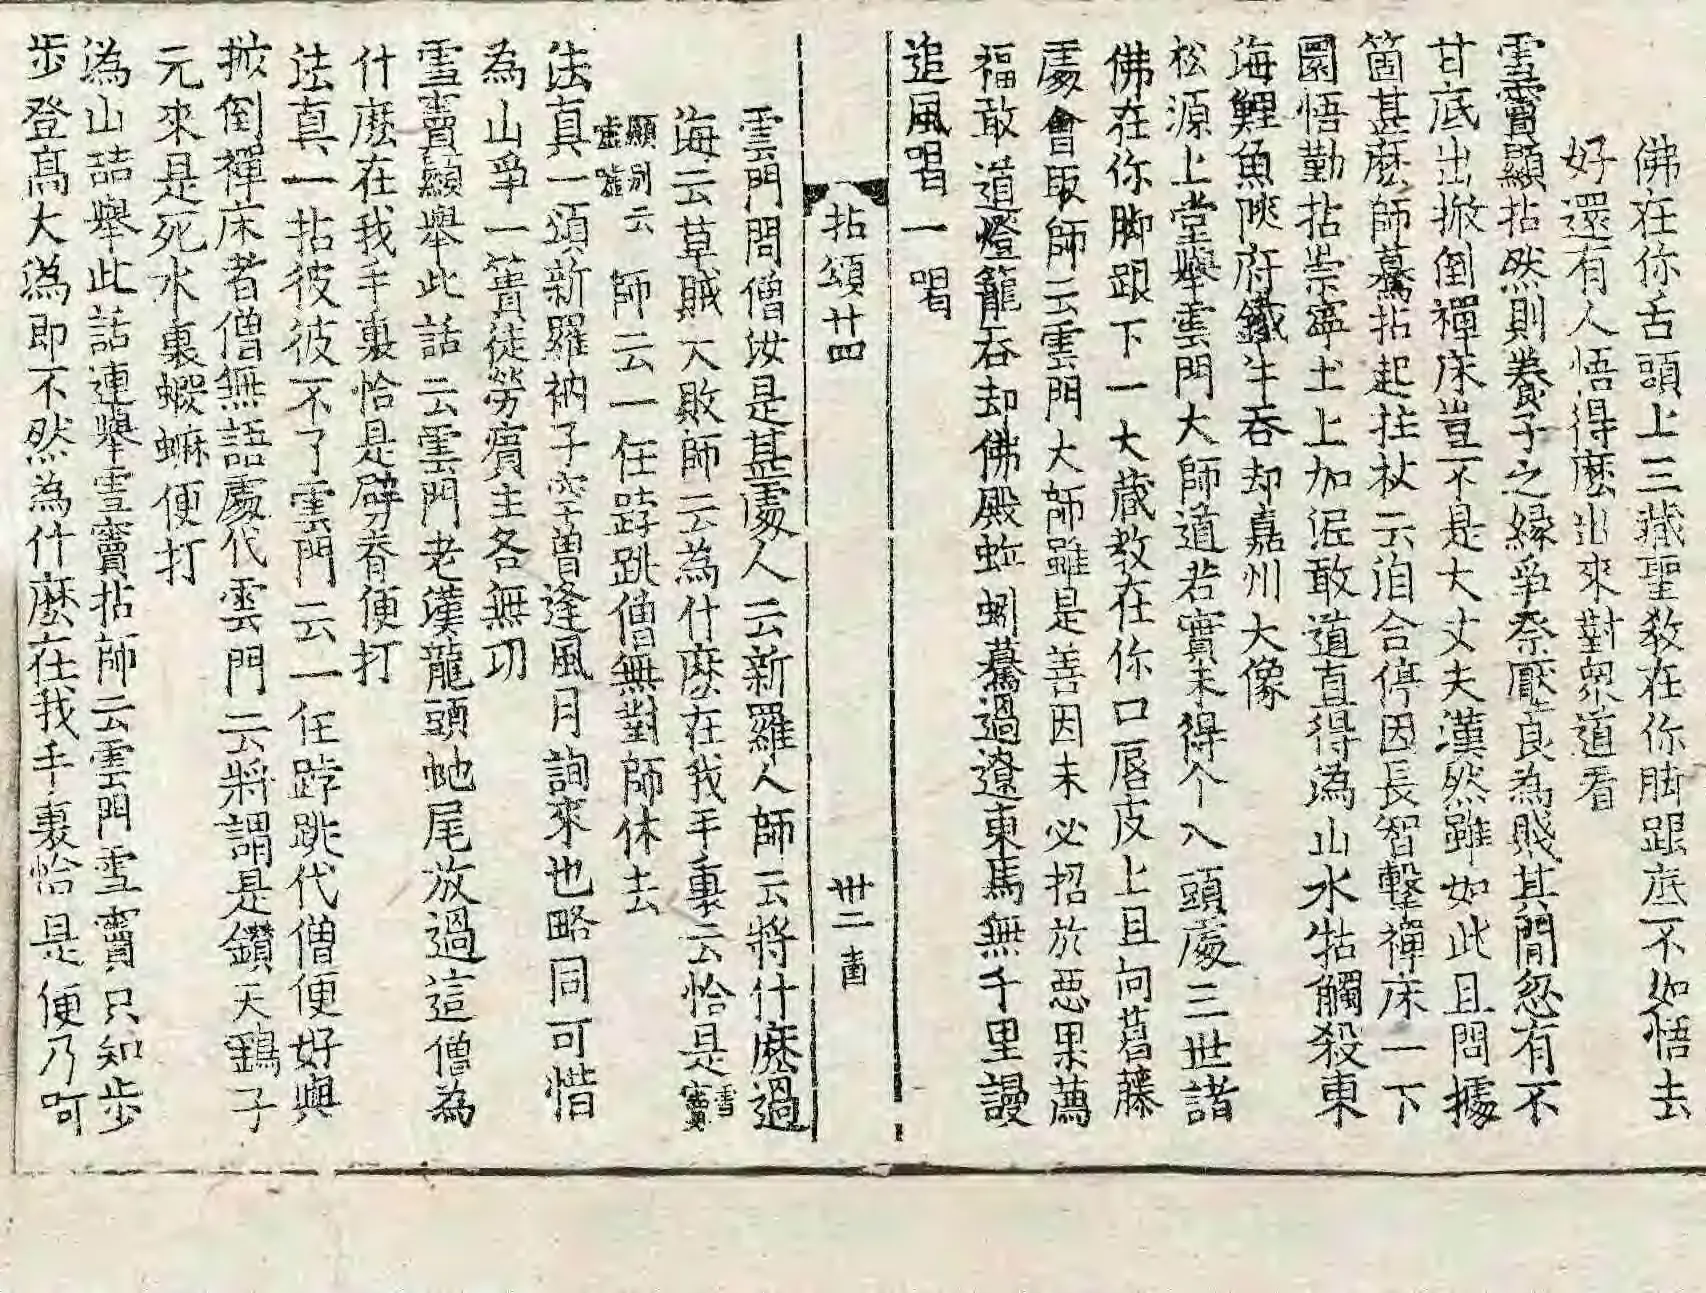 佛在你舌頭上三藏聖教在你脚跟底不如悟去
好還有人悟得麼出來對衆道看
雪竇顯拈然則養子之緣爭柰壓良為賤其間忽有不
甘底出掀倒禪床豈不是大丈夫漢然雖如此且問據
箇甚麼師驀拈起拄杖云洎合停囚長智擊禪床一下
圜悟勤拈崇寧土上加泥敢道直得潙山水牯觸殺東
海鯉魚陝府鐵牛吞却嘉州大像
松源上堂擧雲門大師道若實未得个入頭處三世諸
佛在你脚跟下一大藏教在你口唇皮上且向葛藤
處會取師云雲門大師雖是善因未必招於惡果薦
福敢道燈籠吞却佛殿蚯蚓驀過遼東馬無千里謾
追風唱一唱
拈頌廿四 卅二 啚
雲門問僧汝是甚處人云新羅人師云將什麼過
海云草賊大敗師云為什麼在我手裏云恰是雪竇
顯別云噓噓 師云一任䟦跳僧無對師休去
法真一頌新羅衲子字曾逢風月詢來也略同可惜
為山爭一簣徒勞賓主各無功
雪竇顯舉此話云雲門老漢龍頭虵尾放過這僧為
什麼在我手裏恰是劈脊便打
法真一拈彼彼不了雲門云一任䟦跳代僧便好與
掀倒禪床者僧無語處代雲門云將謂是鑽天鷂子
元來是死水裏蝦蟆便打
潙山喆舉此話連舉雪竇拈師云雲門雪竇只知步
步登高大潙即不然為什麼在我手裏恰是便乃呵